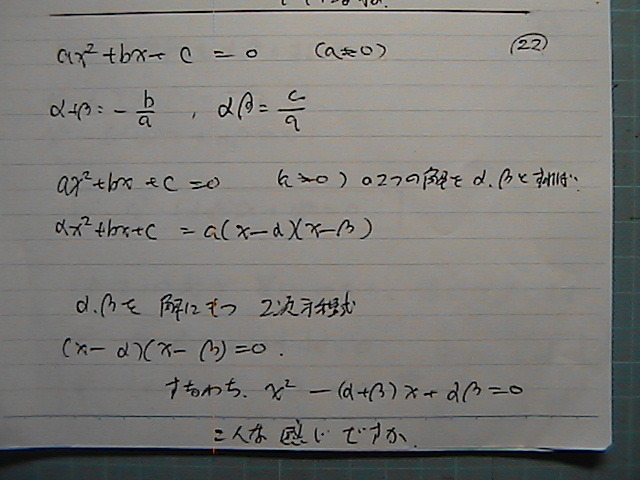 ax²+bx+c = 0 (a≠0) ㉒
α+β = -b/a , αβ = c/a
ax²+bx+c = 0 (a≠0) の2つの解をα.βとすれば
ax²+bx+c = a(x-α)(x-β)
α.βを解にもつ 2次方程式
(x-α)(x-β)=0.
すなわち. x² -(α+β)x+αβ=0
こんな感じですか.